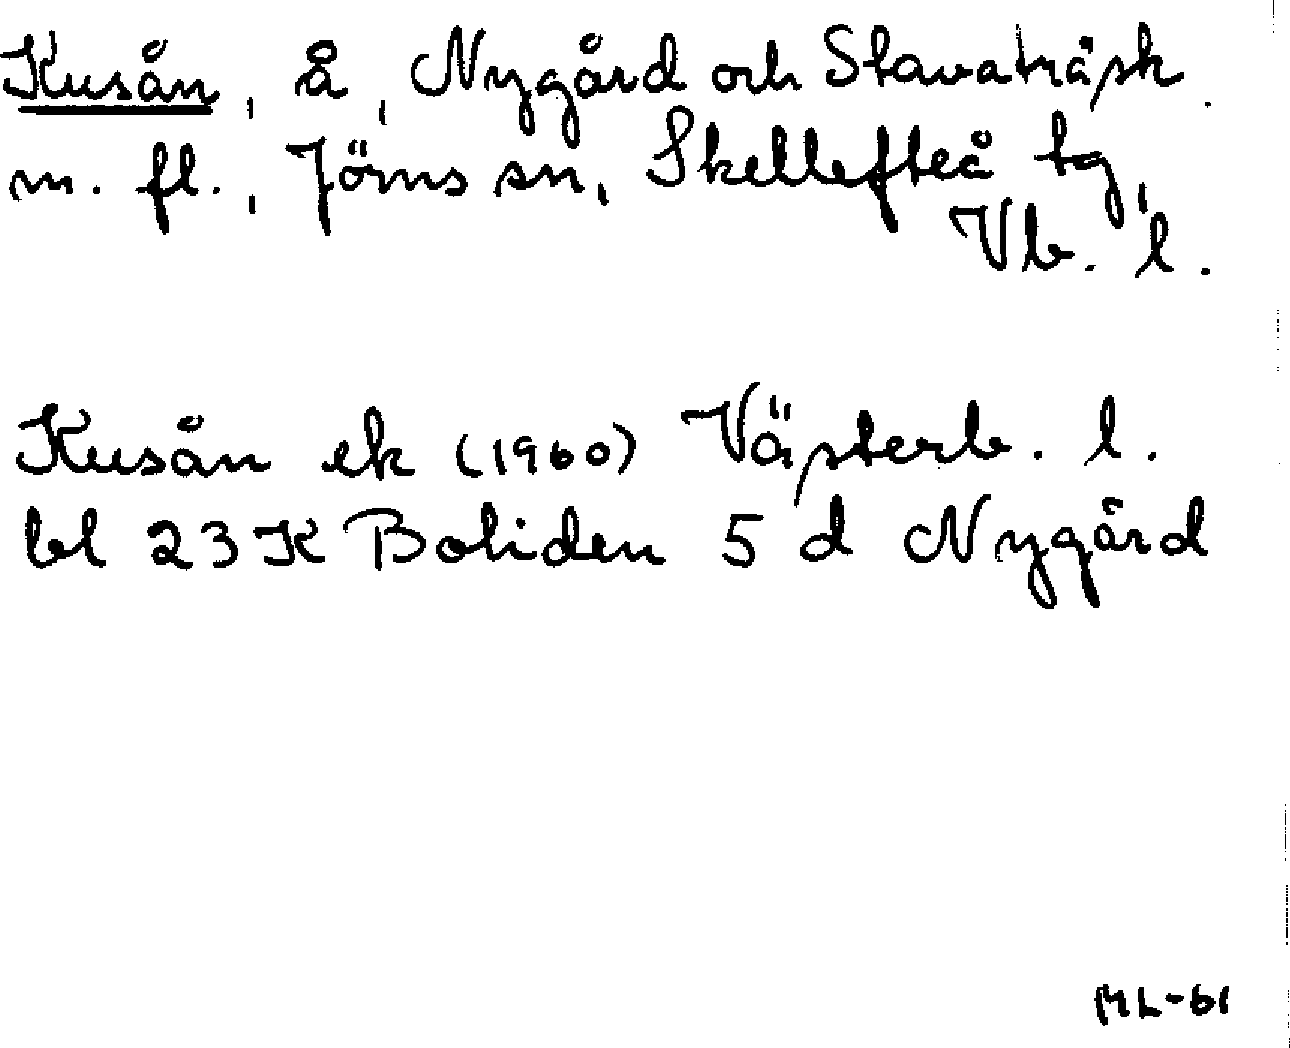 Kusån, å, Nygård och Stavaträsk
m. fl., Jörns sn, Skellefteå tg,
Vb. l.
Kusån ek (1960) Västerb. l.
bl 23 K Boliden 5 d Nygård
ML-61